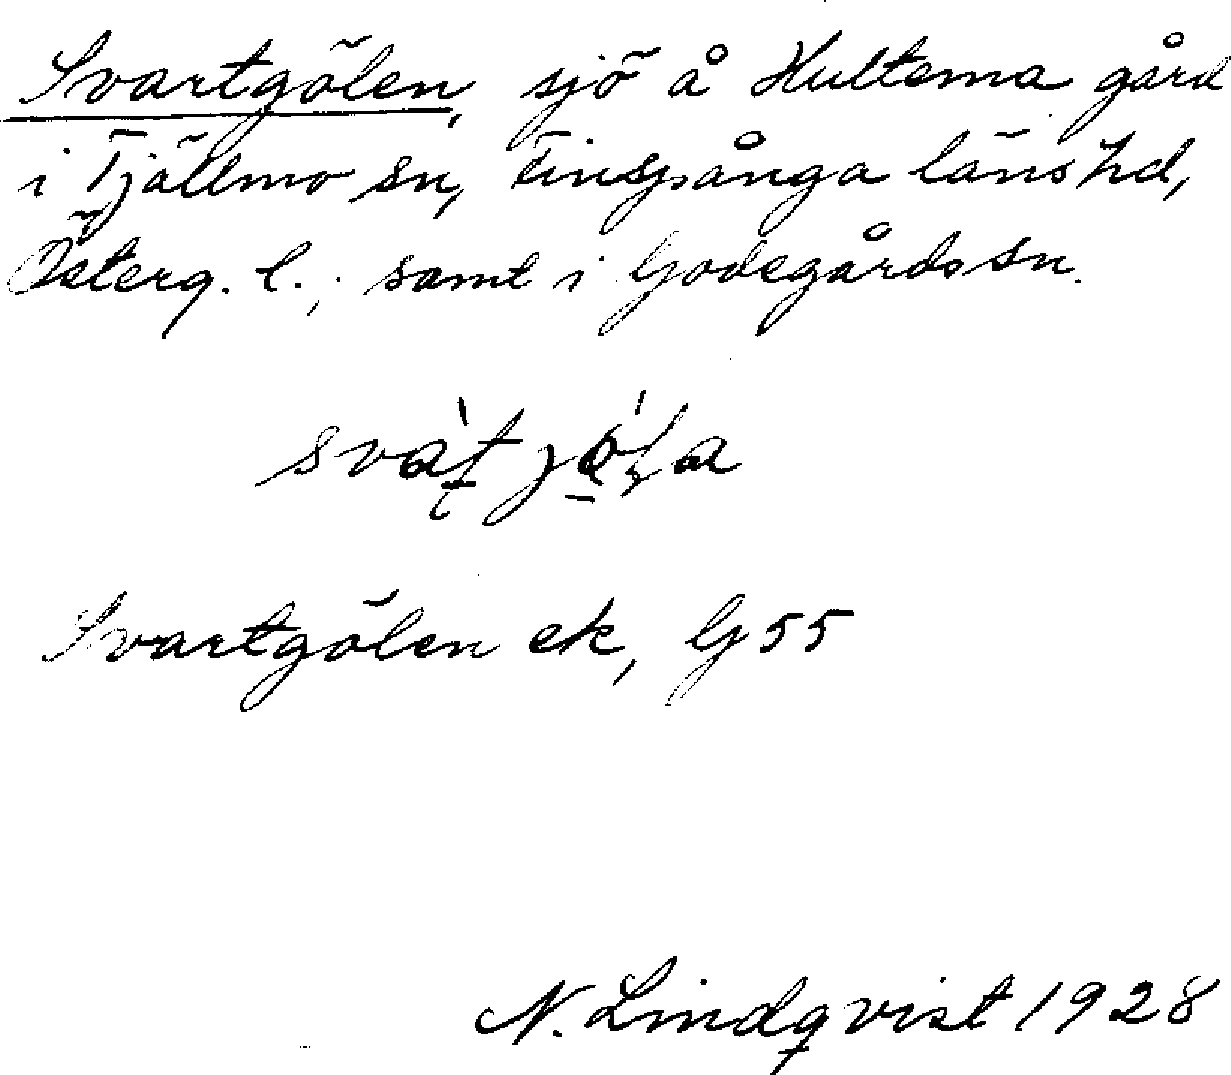 Svartgölen, sjö å Hultema gård
i Tjällmo sn, Finspånga läns hd,
Österg. l., samt i Godegårds sn.
Svartgölen ek, G 55
N. Lindqvist 1928